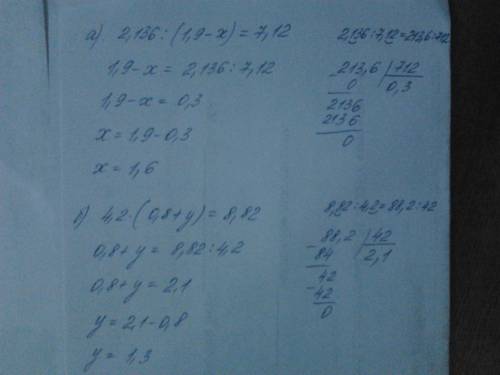 а) 2,136 : (1,9 - x) = 7,12
1,9 - x = 2,136 : 7,12
1,9 - x = 0,3
x = 1,9 - 0,3
x = 1,6
2,136 : 7,12 = 213,6 : 712
- 213,6 | 712
0 | 0,3
2136
2136
0
б) 4,2 · (0,8 + y) = 8,82
0,8 + y = 8,82 : 4,2
0,8 + y = 2,1
y = 2,1 - 0,8
y = 1,3
8,82 : 4,2 = 88,2 : 42
- 88,2 | 42
84 | 2,1
- 42
42
0